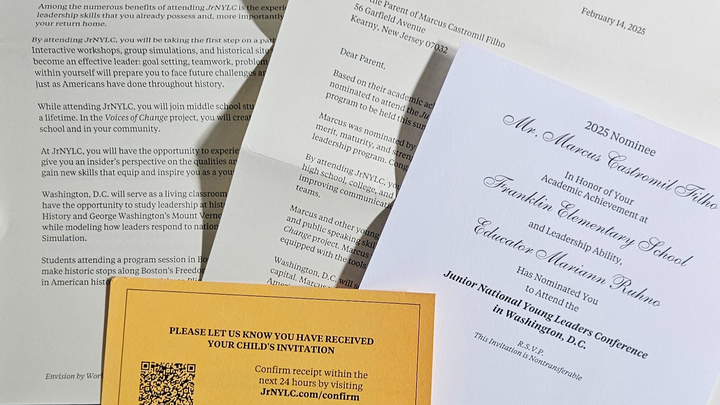 Among the numerous benefits of attending JrNYLC is the
leadership skills that you already possess and, more importantly
your return home.
By attending JrNYLC, you will be taking the first step on a
Interactive workshops, group simulations, and historical
become an effective leader: goal setting, teamwork, problem
within yourself will prepare you to face future challenges
just as Americans have done throughout history.
While attending JrNYLC, you will join middle school
a lifetime. In the Voices of Change project, you will
school and in your community.
At JrNYLC, you will have the opportunity to
give you an insider's perspective on the qualities
gain new skills that equip and inspire you as a
Washington, D.C. will serve as a living classroom
have the opportunity to study leadership at
History and George Washington's Mount
while modeling how leaders respond to
Simulation.
Students attending a program session in
make historic stops along Boston's
in American
Envision by
the Parent of Marcus Castromil Filho
56 Garfield Avenue
Kearny, New Jersey 07032
February 14, 2025
Dear Parent,
Based on their academic
nominated to attend the
program to be held this
Marcus was nominated by
merit, maturity, and
leadership program.
By attending JrNYLC,
high school, college, and
improving
teams.
Marcus and other young
and public speaking
Change project. Marcus
equipped with the tools
Washington, D.C. will
capital. Marcus
2025 Nominee
Mr. Marcus Castromil Filho
In Honor of Your
Academic Achievement at
Franklin Elementary School
and Leadership Ability,
Educator Mariann Ruhno
Has Nominated You
to Attend the
Junior National Young Leaders Conference
in Washington, D.C.
R.S.V.P.
This Invitation is Nontransferable
PLEASE LET US KNOW YOU HAVE RECEIVED
YOUR CHILD'S INVITATION
Confirm receipt within the
next 24 hours by visiting
JrNYLC.com/confirm